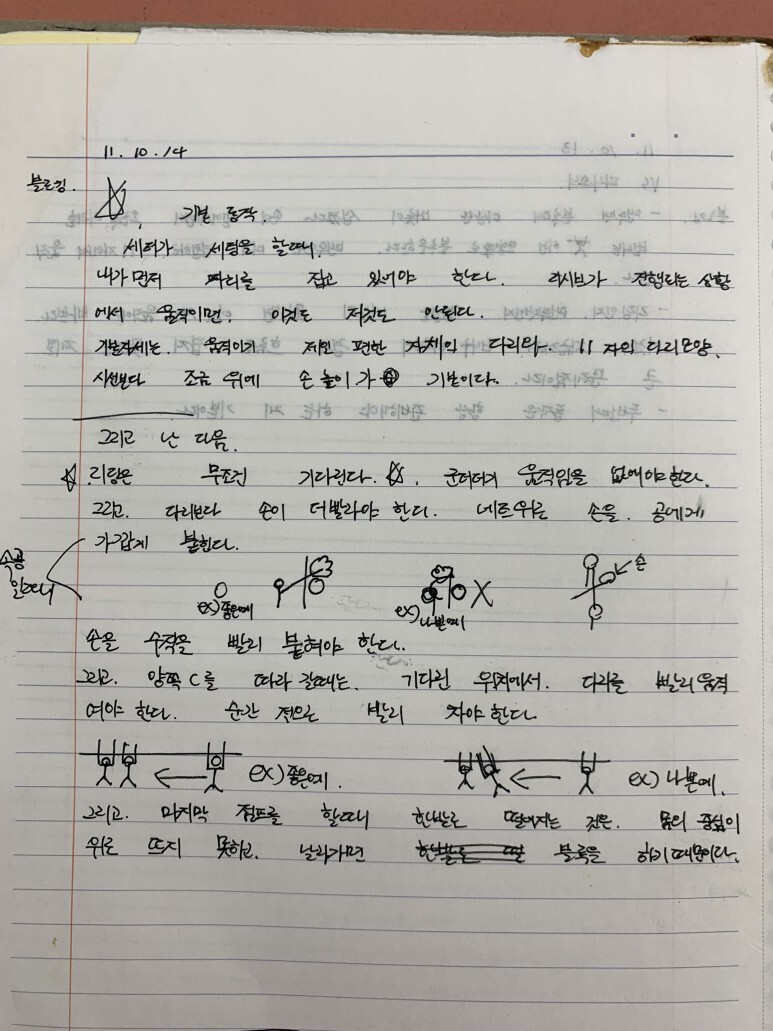 11. 10. 14
블로킹.
☆ 기본 동작.
세터가 세팅을 할때.
내가 먼저 자리를 잡고 있어야 한다. 리시브가 진행되는 상황
에서 움직이면, 이것도 저것도 안된다.
기본자세는. 움직이기 제일 편한 자세의 다리와. 11 자의 다리모양.
시선보다 조금 위에 손 높이가 기본이다.
그리고 난 다음.
☆ 리딩은 무조건 기다린다. ☆. 군더더기 움직임을 없애야한다.
그리고. 다리보다 손이 더빨라야 한다. 네트위로 손을. 공에게
가깝게 붙힌다.
속공 일때
ex) 좋은예 ex) 나쁜예 X 손
손을 수직을 빨리 붙혀야 한다.
그리고. 양쪽 C를 따라 갈때는. 기다린 위치에서. 다리를 빨리 움직
여야 한다. 순간 적으로 빨리 차야한다
ex) 좋은예. ex) 나쁜예.
그리고. 마지막 점프를 할때 한발로 떨어지는 것은. 몸의 중심이
위로 뜨지 못하고. 날라가면 블록을 하기 때문이다.